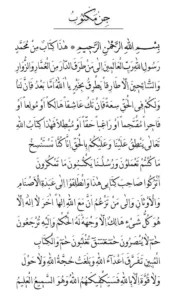 حِرْزٌ مَكْتُوبٌ
بِسْمِ اللهِ الرَّحْمٰنِ الرَّحِيْمِ ۞ هٰذَا كِتَابٌ مِنْ مُحَمَّدٍ
رَسُوْلِ اللهِ رَبِّ الْعَالَمِيْنَ اِلٰى مَنْ طَرَقَ الدَّارَ مِنَ الْعُمَّارِ وَالزُّوَّارِ
وَالصَّالِحِيْنَ اِلَّا طَارِقًا يَطْرُقُ بِخَيْرٍ يَا اَللهُ اَمَّا بَعْدُ فَاِنَّ لَنَا
وَلَكُمْ فِى الْحَقِّ سَعَةً فَاِنْ تَكُ عَاشِقًا مُوْلِعًا اَوْ
فَاجِرًا مُقْتَحِمًا اَوْ رَاغِبًا حَقًّا اَوْ مُبْطِلًا فَهٰذَا كِتَابُ اللهِ
تَعَالٰى يَنْطِقُ عَلَيْنَا وَعَلَيْكُمْ بِالْحَقِّ اِنَّا كُنَّا نَسْتَنْسِخُ
مَا كُنْتُمْ تَعْمَلُوْنَ وَرُسُلُنَا يَكْتُبُوْنَ مَا تَمْكُرُوْنَ
اُتْرُكُوْا صَاحِبَ كِتَابِى هٰذَا وَانْطَلِقُوْا اِلٰى عَبَدَةِ الْاَصْنَامِ
وَالْاَوْثَانِ وَاِلٰى مَنْ تَزْعُمُ اَنَّ مَعَ اللهِ اِلٰهًا اٰخَرَ لَا اِلٰهَ اِلَّا
هُوَ كُلُّ شَىْءٍ هَالِكٌ اِلَّا وَجْهَهُ لَهُ الْحُكْمُ وَاِلَيْهِ تُرْجَعُوْنَ
حٰمٓ لَا يُنْصَرُوْنَ حٰمٓعٓسٓقٓ تُغْلَبُوْنَ حٰمٓ وَالْكِتَابِ
الْمُبِيْنِ تَفَرَّقَ اَعْدَاءُ اللهِ وَبَلَغَتْ حُجَّةُ اللهِ وَلَا حَوْلَ
وَلَا قُوَّةَ اِلَّا بِاللهِ فَسَيَكْفِيْكَهُمُ اللهُ وَهُوَ السَّمِيْعُ الْعَلِيْمُ